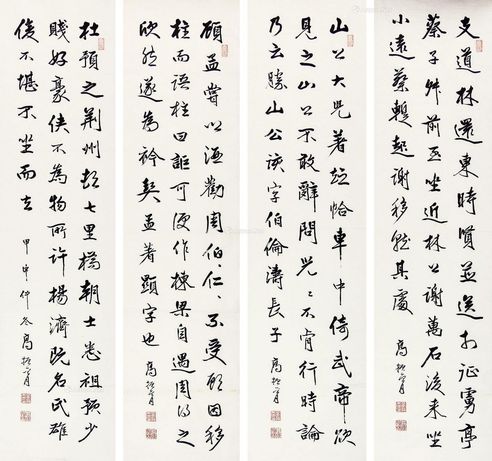 支道林還東時賢並送於征虜亭
蔡子叔前至坐近林公謝萬石後来坐
小遠蔡蹔起謝移就其處 高振霄
山公大兒著短帢車中倚武帝欲
見之山公不敢辭問兒〻不肯行時論
乃云勝山公該字伯倫濤長子 高振霄
顧孟嘗以酒勸周伯〻仁〻不受顧因移
柱而語柱曰詎可便作棟梁自遇周得之
欣然遂為衿契孟著顯字也 高振霄
杜預之荊州頓七里橋朝士悉祖預少
賤好豪俠不為物所許楊濟既名氏雄
俊不堪不坐而去 甲申仲冬高振霄